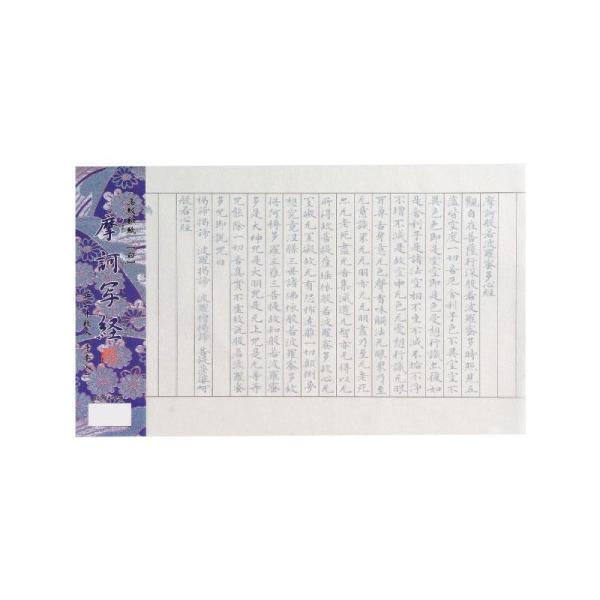 摩訶般若波羅蜜多心経
觀自在菩薩行深般若波羅蜜多時照見五
蘊皆空度一切苦厄舎利子色不異空空不
異色色即是空空即是色受想行識亦復如
是舎利子是諸法空相不生不滅不垢不淨
不增不減是故空中无色无受想行識无眼
耳鼻舌身意无色聲香味觸法无眼界乃至
无意識界无无明亦无无明盡乃至无老死
亦无老死盡无苦集滅道无智亦无得以无
所得故菩提薩埵依般若波羅蜜多故心无
罣礙无罣礙故无有恐怖遠離一切顛倒夢
想究竟涅槃三世諸佛依般若波羅蜜多故
得阿耨多羅三藐三菩提故知般若波羅蜜
多是大神咒是大明咒是无上咒是无等等
咒能除一切苦真實不虛故說般若波羅蜜
多咒即說咒曰
揭諦揭諦 波羅揭諦 波羅僧揭諦 菩提薩婆訶
般若心経
摩訶写経